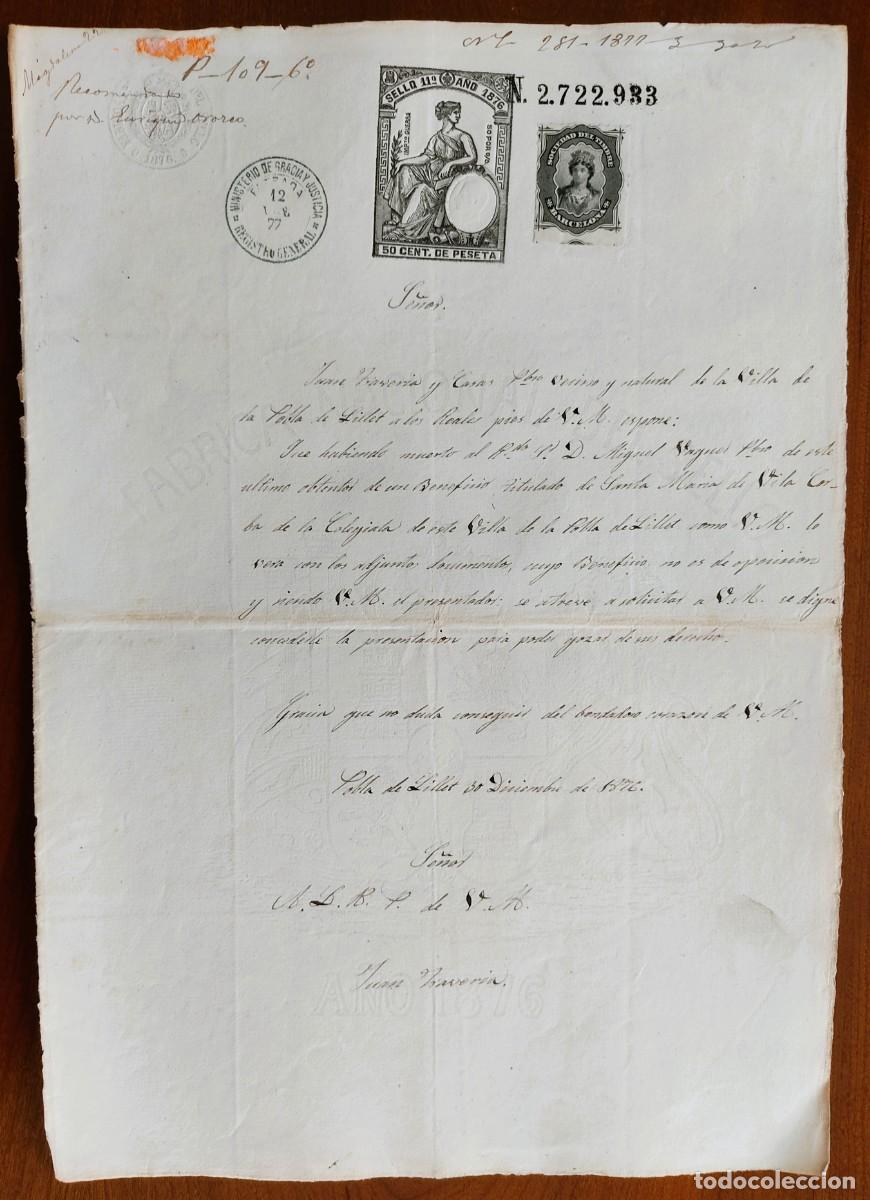 Magdalena 22
Recomendado
por D. Enrique Orozco.
P-109-6º
281-1877-3
MINISTERIO DE GRACIA Y JUSTICIA
ENTRADA
12
77
REGISTRO GENERAL
SELLO 11º AÑO 1876
IMPTO GUERRA
50 POR 0/0
50 CENT. DE PESETA
N. 2.722.933
SOCIEDAD DEL TIMBRE
BARCELONA
Señor.
Juan Traveria y Casas Pbro vecino y natural de la Villa de
la Pobla de Lillet a los Reales pies de V. M. espone:
Que habiendo muerto al Rdo D. Miguel Pbro de este
ultimo obtentor de un Beneficio titulado de Santa Maria de Vila Cor-
ba de la Colegiata de este Villa de la Pobla de Lillet como V. M. lo
verá con los adjuntos documentos, cuyo Beneficio no es de oposicion
y siendo V. M. el presentador; se atreve a solicitar a V. M. se digne
concederle la presentacion para poder gozar de sus derecho.
Gracia que no duda conseguir del bondadoso corazon de V. M.
Pobla de Lillet 30 Diciembre de 1876.
Señor
A. L. R. P. de V. M.
Juan Traveria.
AÑO 1876
todocoleccion